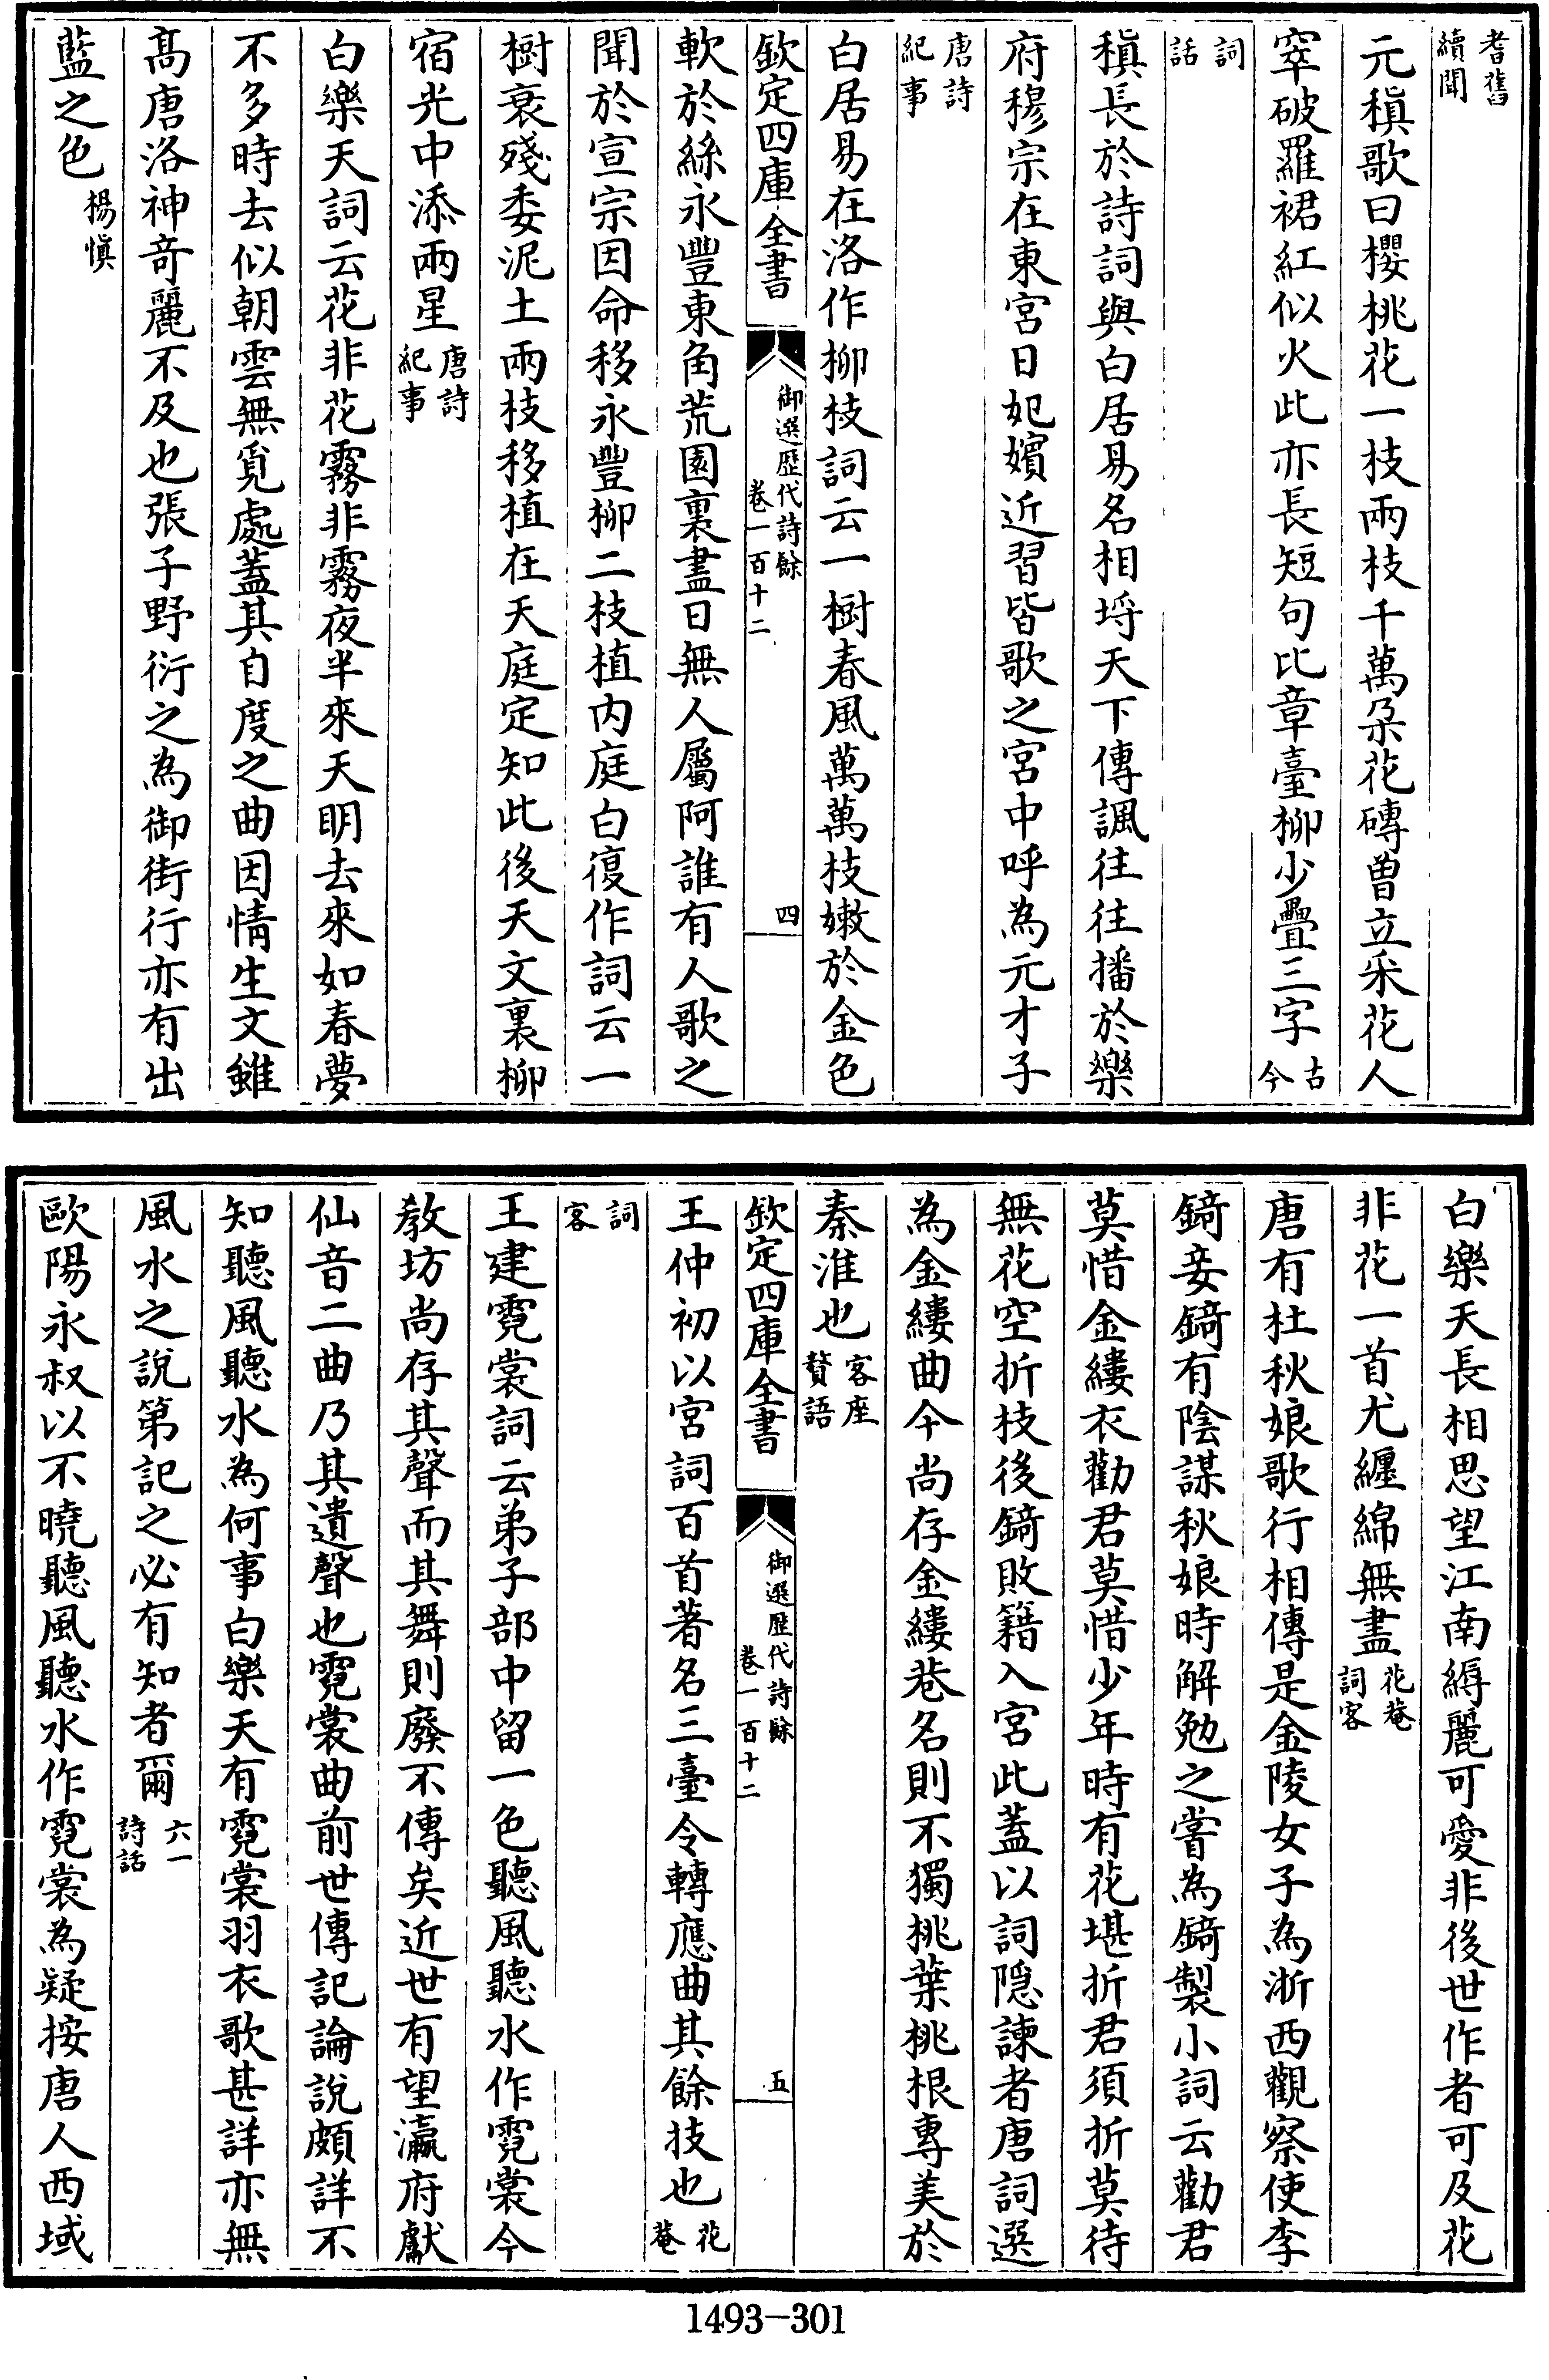 耆舊續聞
元稹歌曰櫻桃花一枝兩枝千萬朶花磚曾立采花人
窣破羅裙紅似火此亦長短句比章臺柳少疊三字古今
詞話
稹長於詩詞與白居易名相埒天下傳諷往往播於樂
府穆宗在東宮日妃嬪近習皆歌之宮中呼為元才子
唐詩紀事
白居易在洛作柳枝詞云一樹春風萬萬枝嫩於金色
欽定四庫全書 御選歷代詩餘 卷一百十二 四
軟於絲永豐東角荒園裏盡日無人屬阿誰有人歌之
聞於宣宗因命移永豐柳二枝植内庭白復作詞云一
樹衰殘委泥土兩枝移植在天庭定知此後天文裏柳
宿光中添兩星唐詩紀事
白樂天詞云花非花霧非霧夜半來天明去來如春夢
不多時去似朝雲無覓處蓋其自度之曲因情生文雖
髙唐洛神奇麗不及也張子野衍之為御街行亦有出
藍之色楊慎
白樂天長相思望江南縟麗可愛非後世作者可及花
非花一首尤纏綿無盡花菴詞客
唐有杜秋娘歌行相傳是金陵女子為浙西觀察使李
錡妾錡有陰謀秋娘時解勉之嘗為錡製小詞云勸君
莫惜金縷衣勸君莫惜少年時有花堪折君須折莫待
無花空折枝後錡敗籍入宮此蓋以詞隱諫者唐詞選
為金縷曲今尚存金縷巷名則不獨桃葉桃根專美於
秦淮也客座贅語
欽定四庫全書 御選歷代詩餘 卷一百十二 五
王仲初以宮詞百首著名三臺令轉應曲其餘技也花菴
詞客
王建霓裳詞云弟子部中留一色聽風聽水作霓裳今
教坊尚存其聲而其舞則廢不傳矣近世有望瀛府獻
仙音二曲乃其遺聲也霓裳曲前世傳記論說頗詳不
知聽風聽水為何事白樂天有霓裳羽衣歌甚詳亦無
風水之說第記之必有知者爾六一詩話
歐陽永叔以不曉聽風聽水作霓裳為疑按唐人西域
1493-301